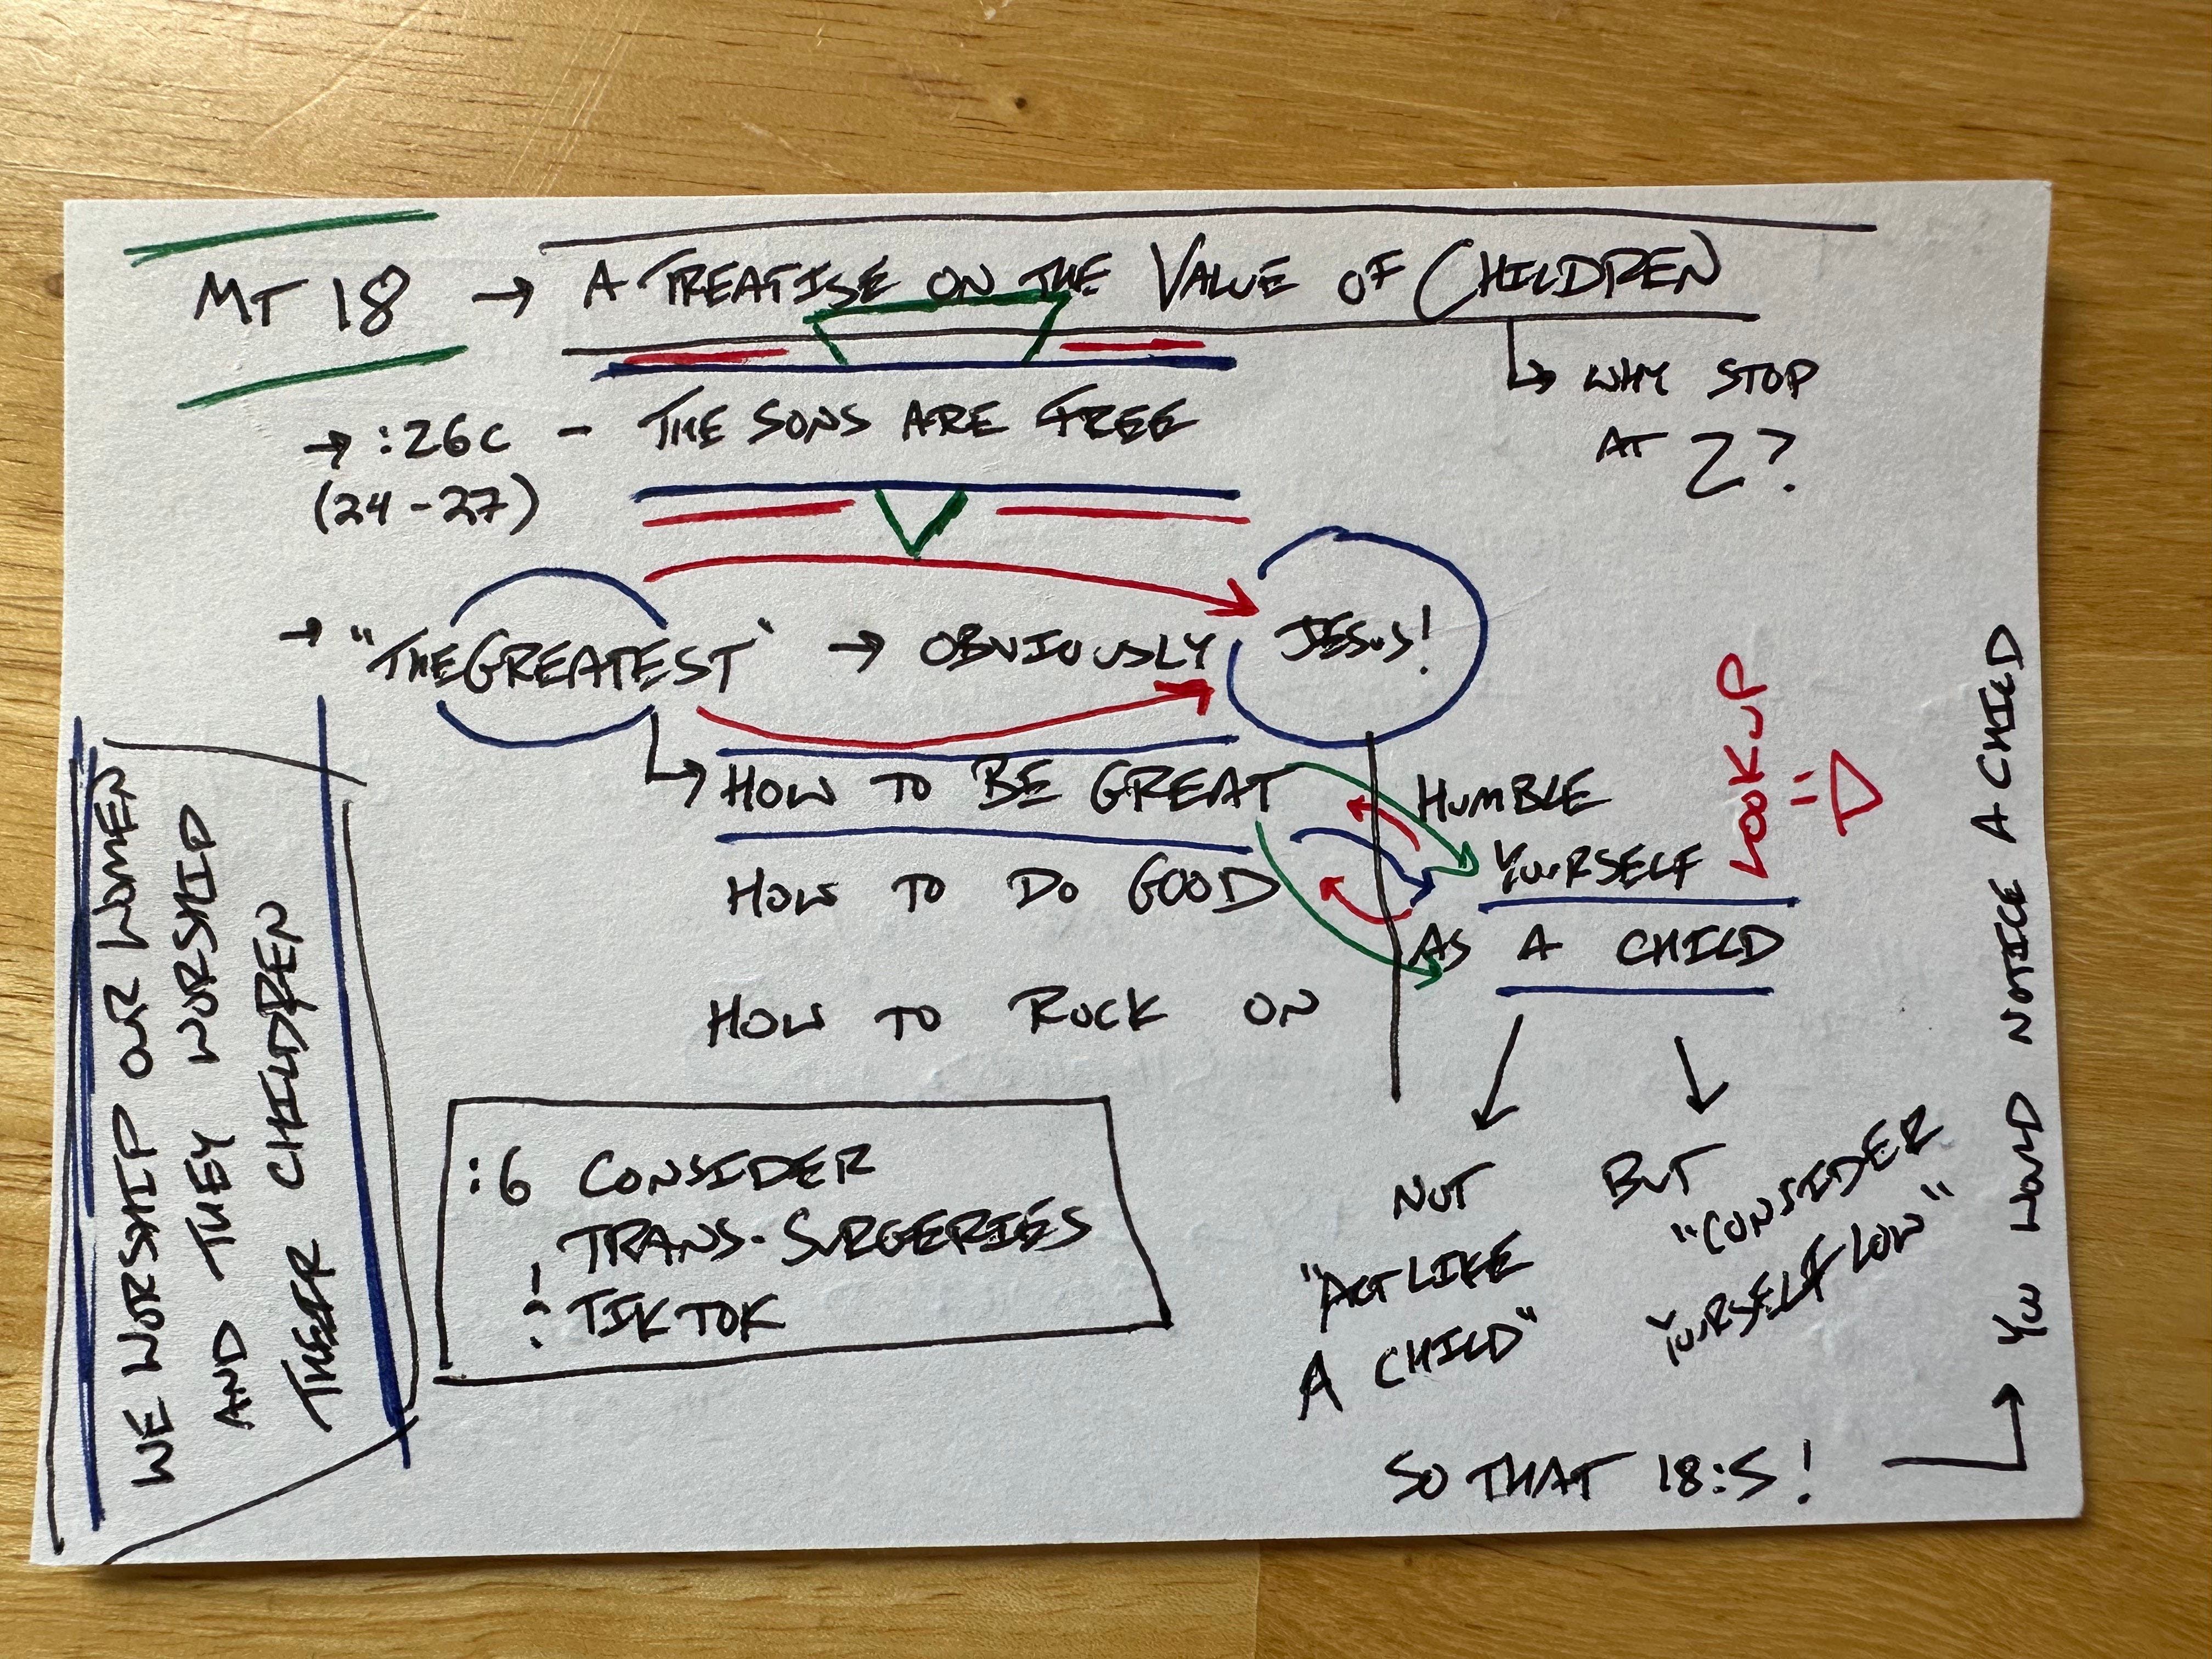 MT 18 → A TREATISE ON THE VALUE OF CHILDREN
↳ WHY STOP
AT 2?
→ :26C - THE SONS ARE FREE
(24-27)
→ "THE GREATEST" → OBVIOUSLY JESUS!
↳ HOW TO BE GREAT
HOW TO DO GOOD
HOW TO ROCK ON
HUMBLE
YOURSELF
AS A CHILD
LOOK UP
=D
NOT
"ACT LIKE
A CHILD"
BUT
"CONSIDER
YOURSELF LOW"
SO THAT 18:5!
→ YOU WOULD NOTICE A CHILD
:6 CONSIDER
TRANS-SURGERIES
: TIKTOK
WE WORSHIP OUR WOMEN
AND THEY WORSHIP
THEIR CHILDREN